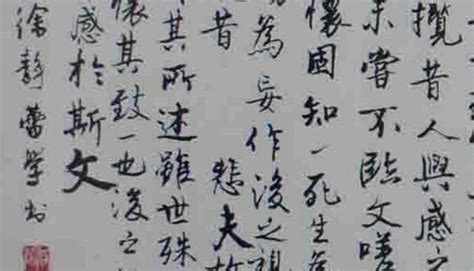 攬昔人興感之
未嘗不臨文嗟
懷固知一死生為
為妄作後之視
昔悲夫故
其所述雖世殊
懷其致一也後之
感於斯文
徐靜蕾學書